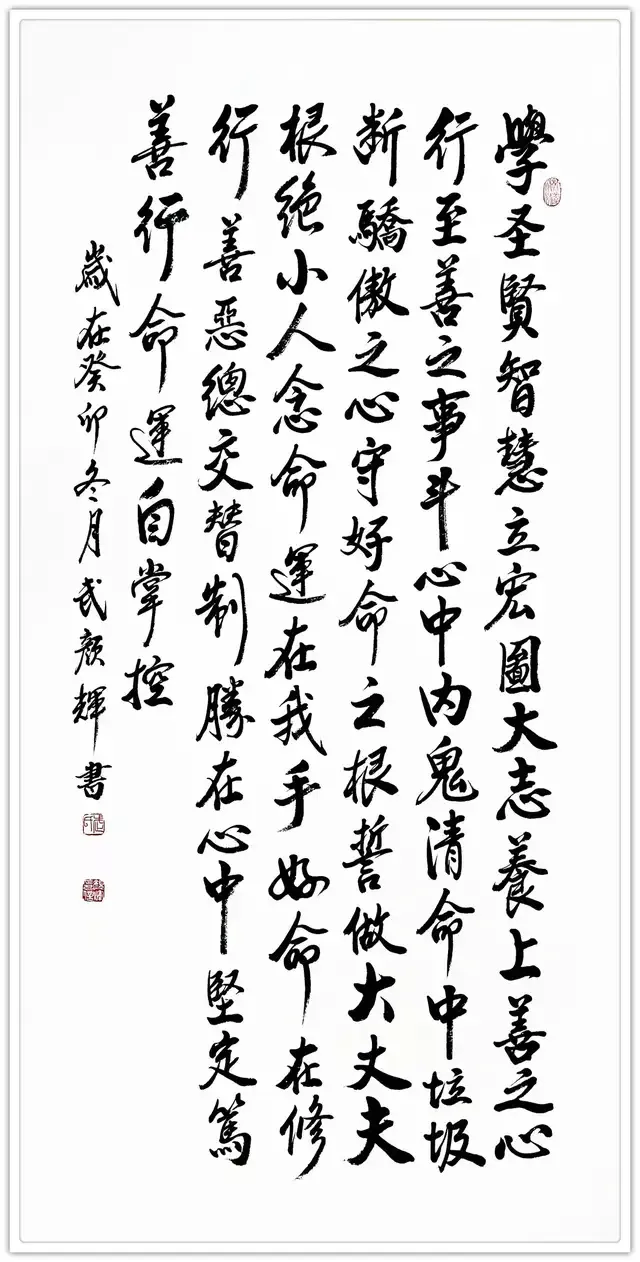 學圣賢智慧立宏圖大志養上善之心
行至善之事斗心中内鬼清命中垃圾
断驕傲之心守好命之根誓做大丈夫
根绝小人念命運在我手好命在修
行善惡總交替制勝在心中堅定篤
善行命運自掌控
歲在癸卯冬月武顏輝書